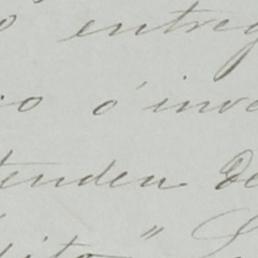 o entreg
io ó inve
tenden de
ito "